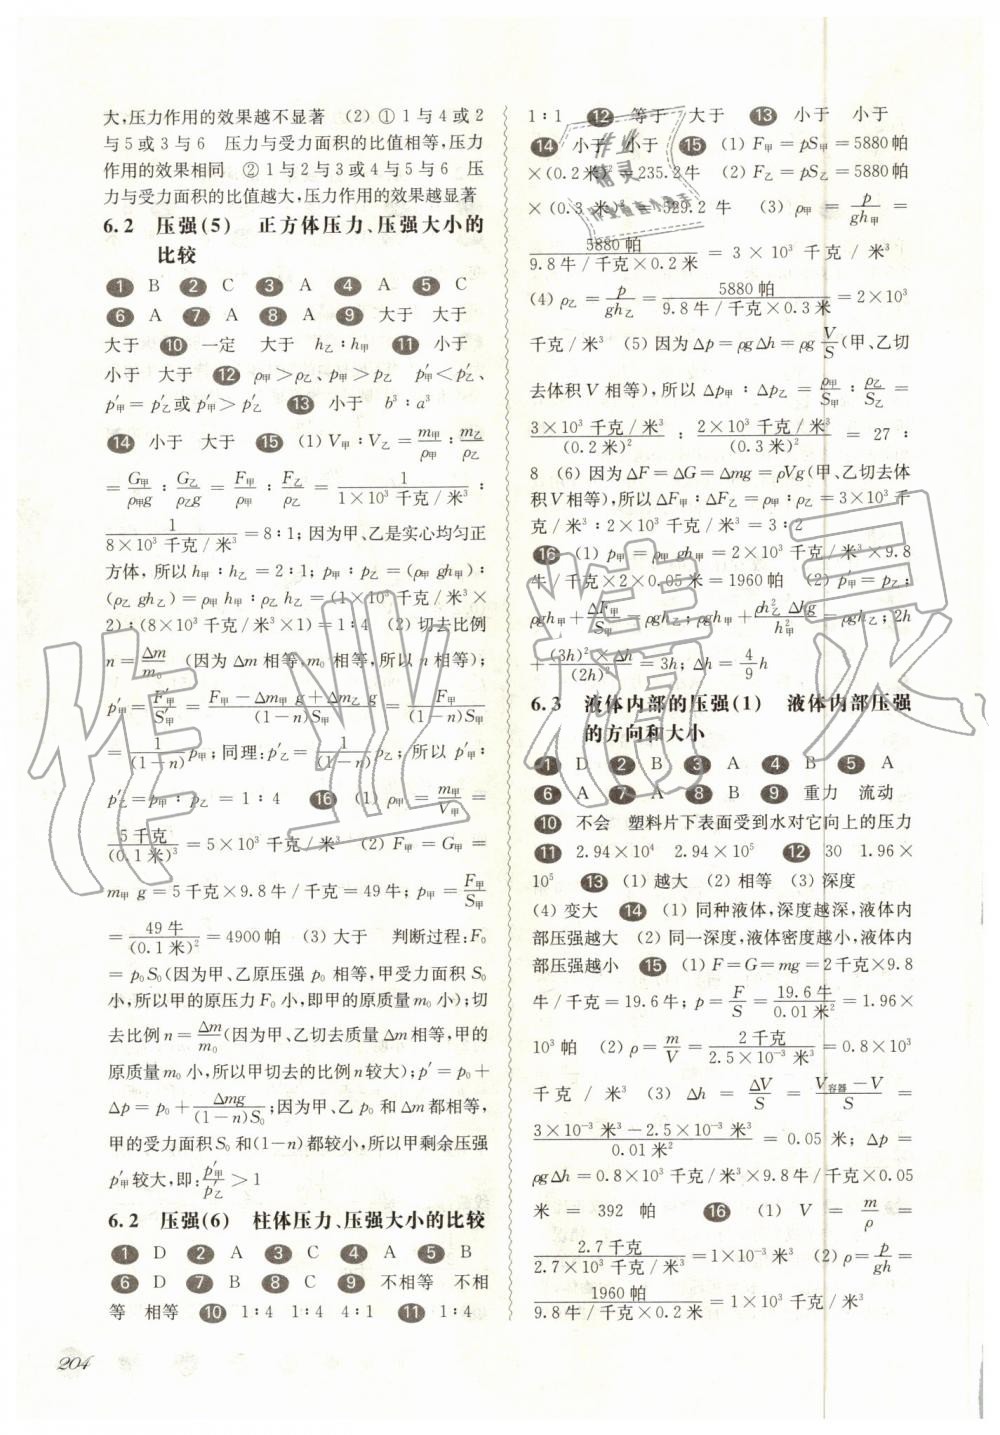 大,压力作用的效果越不显著 (2) ① 1与4或2
与5或3与6 压力与受力面积的比值相等,压力
作用的效果相同 ② 1与2与3或4与5与6 压
力与受力面积的比值越大,压力作用的效果越显著
6.2 压强(5) 正方体压力、压强大小的
比较
❶ B ❷ C ❸ A ❹ A ❺ C
❻ A ❼ A ❽ A ❾ 大于 大于
大于 ❿ 一定 大于 h乙∶h甲 ⓫ 小于
小于 大于 ⓬ ρ甲>ρ乙、p甲>p乙 p′甲<p′乙、
p′甲=p′乙或p′甲>p′乙 ⓭ 小于 b³∶a³
⓮ 小于 大于 ⓯ (1) V甲∶V乙=m甲/ρ甲∶m乙/ρ乙
=G甲/ρ甲g∶G乙/ρ乙g=F甲/ρ甲∶F乙/ρ乙=1/(1×10³千克/米³)∶
1/(8×10³千克/米³)=8∶1;因为甲、乙是实心均匀正
方体,所以h甲∶h乙=2∶1;p甲∶p乙=(ρ甲gh甲)∶
(ρ乙gh乙)=ρ甲h甲∶ρ乙h乙=(1×10³千克/米³×
2)∶(8×10³千克/米³×1)=1∶4 (2) 切去比例
n=Δm/m₀(因为Δm相等,m₀相等,所以n相等);
p′甲=F′甲/S′甲=(F甲-Δm甲g+Δm乙g)/((1-n)S甲)=F甲/((1-n)S甲)
=1/(1-n)p甲;同理:p′乙=1/(1-n)p乙;所以p′甲∶
p′乙=p甲∶p乙=1∶4 ⓰ (1) ρ甲=m甲/V甲=
5千克/(0.1米)³=5×10³千克/米³ (2) F甲=G甲=
m甲g=5千克×9.8牛/千克=49牛;p甲=F甲/S甲
=49牛/(0.1米)²=4900帕 (3) 大于 判断过程:F₀
=p₀S₀(因为甲、乙原压强p₀相等,甲受力面积S₀
小,所以甲的原压力F₀小,即甲的原质量m₀小);切
去比例n=Δm/m₀(因为甲、乙切去质量Δm相等,甲的
质量m₀小,所以甲切去的比例n较大);p′=p₀+
Δp=p₀+Δmg/((1-n)S₀);因为甲、乙p₀和Δm都相等,
甲的受力面积S₀和(1-n)都较小,所以甲剩余压强
p′甲较大,即:p′甲/p′乙>1
6.2 压强(6) 柱体压力、压强大小的比较
❶ D ❷ A ❸ C ❹ A ❺ B
❻ D ❼ B ❽ C ❾ 不相等 不相
等 相等 ❿ 1∶4 1∶4 4∶1 ⓫ 1∶4
204
1∶1 ⓬ 等于 大于 ⓭ 小于 小于
⓮ 小于 小于 ⓯ (1) F甲=pS甲=5880帕
×(0.2米)²=235.2牛 (2) F乙=pS乙=5880帕
×(0.3米)²=529.2牛 (3) ρ甲=p/gh甲=
5880帕/(9.8牛/千克×0.2米)=3×10³千克/米³
(4) ρ乙=p/gh乙=5880帕/(9.8牛/千克×0.3米)=2×10³
千克/米³ (5) 因为Δp=ρgΔh=ρgV/S(甲、乙切
去体积V相等),所以Δp甲∶Δp乙=ρ甲/S甲∶ρ乙/S乙=
3×10³千克/米³/(0.2米)²∶2×10³千克/米³/(0.3米)²=27∶
8 (6) 因为ΔF=ΔG=Δmg=ρVg(甲、乙切去体
积V相等),所以ΔF甲∶ΔF乙=ρ甲∶ρ乙=3×10³千
克/米³∶2×10³千克/米³=3∶2
⓰ (1) p甲=ρ甲gh甲=2×10³千克/米³×9.8
牛/千克×2×0.05米=1960帕 (2) p′甲=p乙;
ρgh甲+ΔF甲/S甲=ρgh乙;ρgh甲+ρh²乙Δhg/h²甲=ρgh乙;2h
+(3h)²×Δh/(2h)²=3h;Δh=4/9h
6.3 液体内部的压强(1) 液体内部压强
的方向和大小
❶ D ❷ B ❸ A ❹ B ❺ A
❻ A ❼ A ❽ B ❾ 重力 流动
❿ 不会 塑料片下表面受到水对它向上的压力
⓫ 2.94×10⁴ 2.94×10⁵ ⓬ 30 1.96×
10⁵ ⓭ (1) 越大 (2) 相等 (3) 深度
(4) 变大 ⓮ (1) 同种液体,深度越深,液体内
部压强越大 (2) 同一深度,液体密度越小,液体内
部压强越小 ⓯ (1) F=G=mg=2千克×9.8
牛/千克=19.6牛;p=F/S=19.6牛/0.01米²=1.96×
10³帕 (2) ρ=m/V=2千克/(2.5×10⁻³米³)=0.8×10³
千克/米³ (3) Δh=ΔV/S=(V容器-V)/S=
(3×10⁻³米³-2.5×10⁻³米³)/0.01米²=0.05米;Δp=
ρgΔh=0.8×10³千克/米³×9.8牛/千克×0.05
米=392帕 ⓰ (1) V=m/ρ=
2.7千克/(2.7×10³千克/米³)=1×10⁻³米³ (2) ρ=p/gh=
1960帕/(9.8牛/千克×0.2米)=1×10³千克/米³
作业精灵
作业精灵